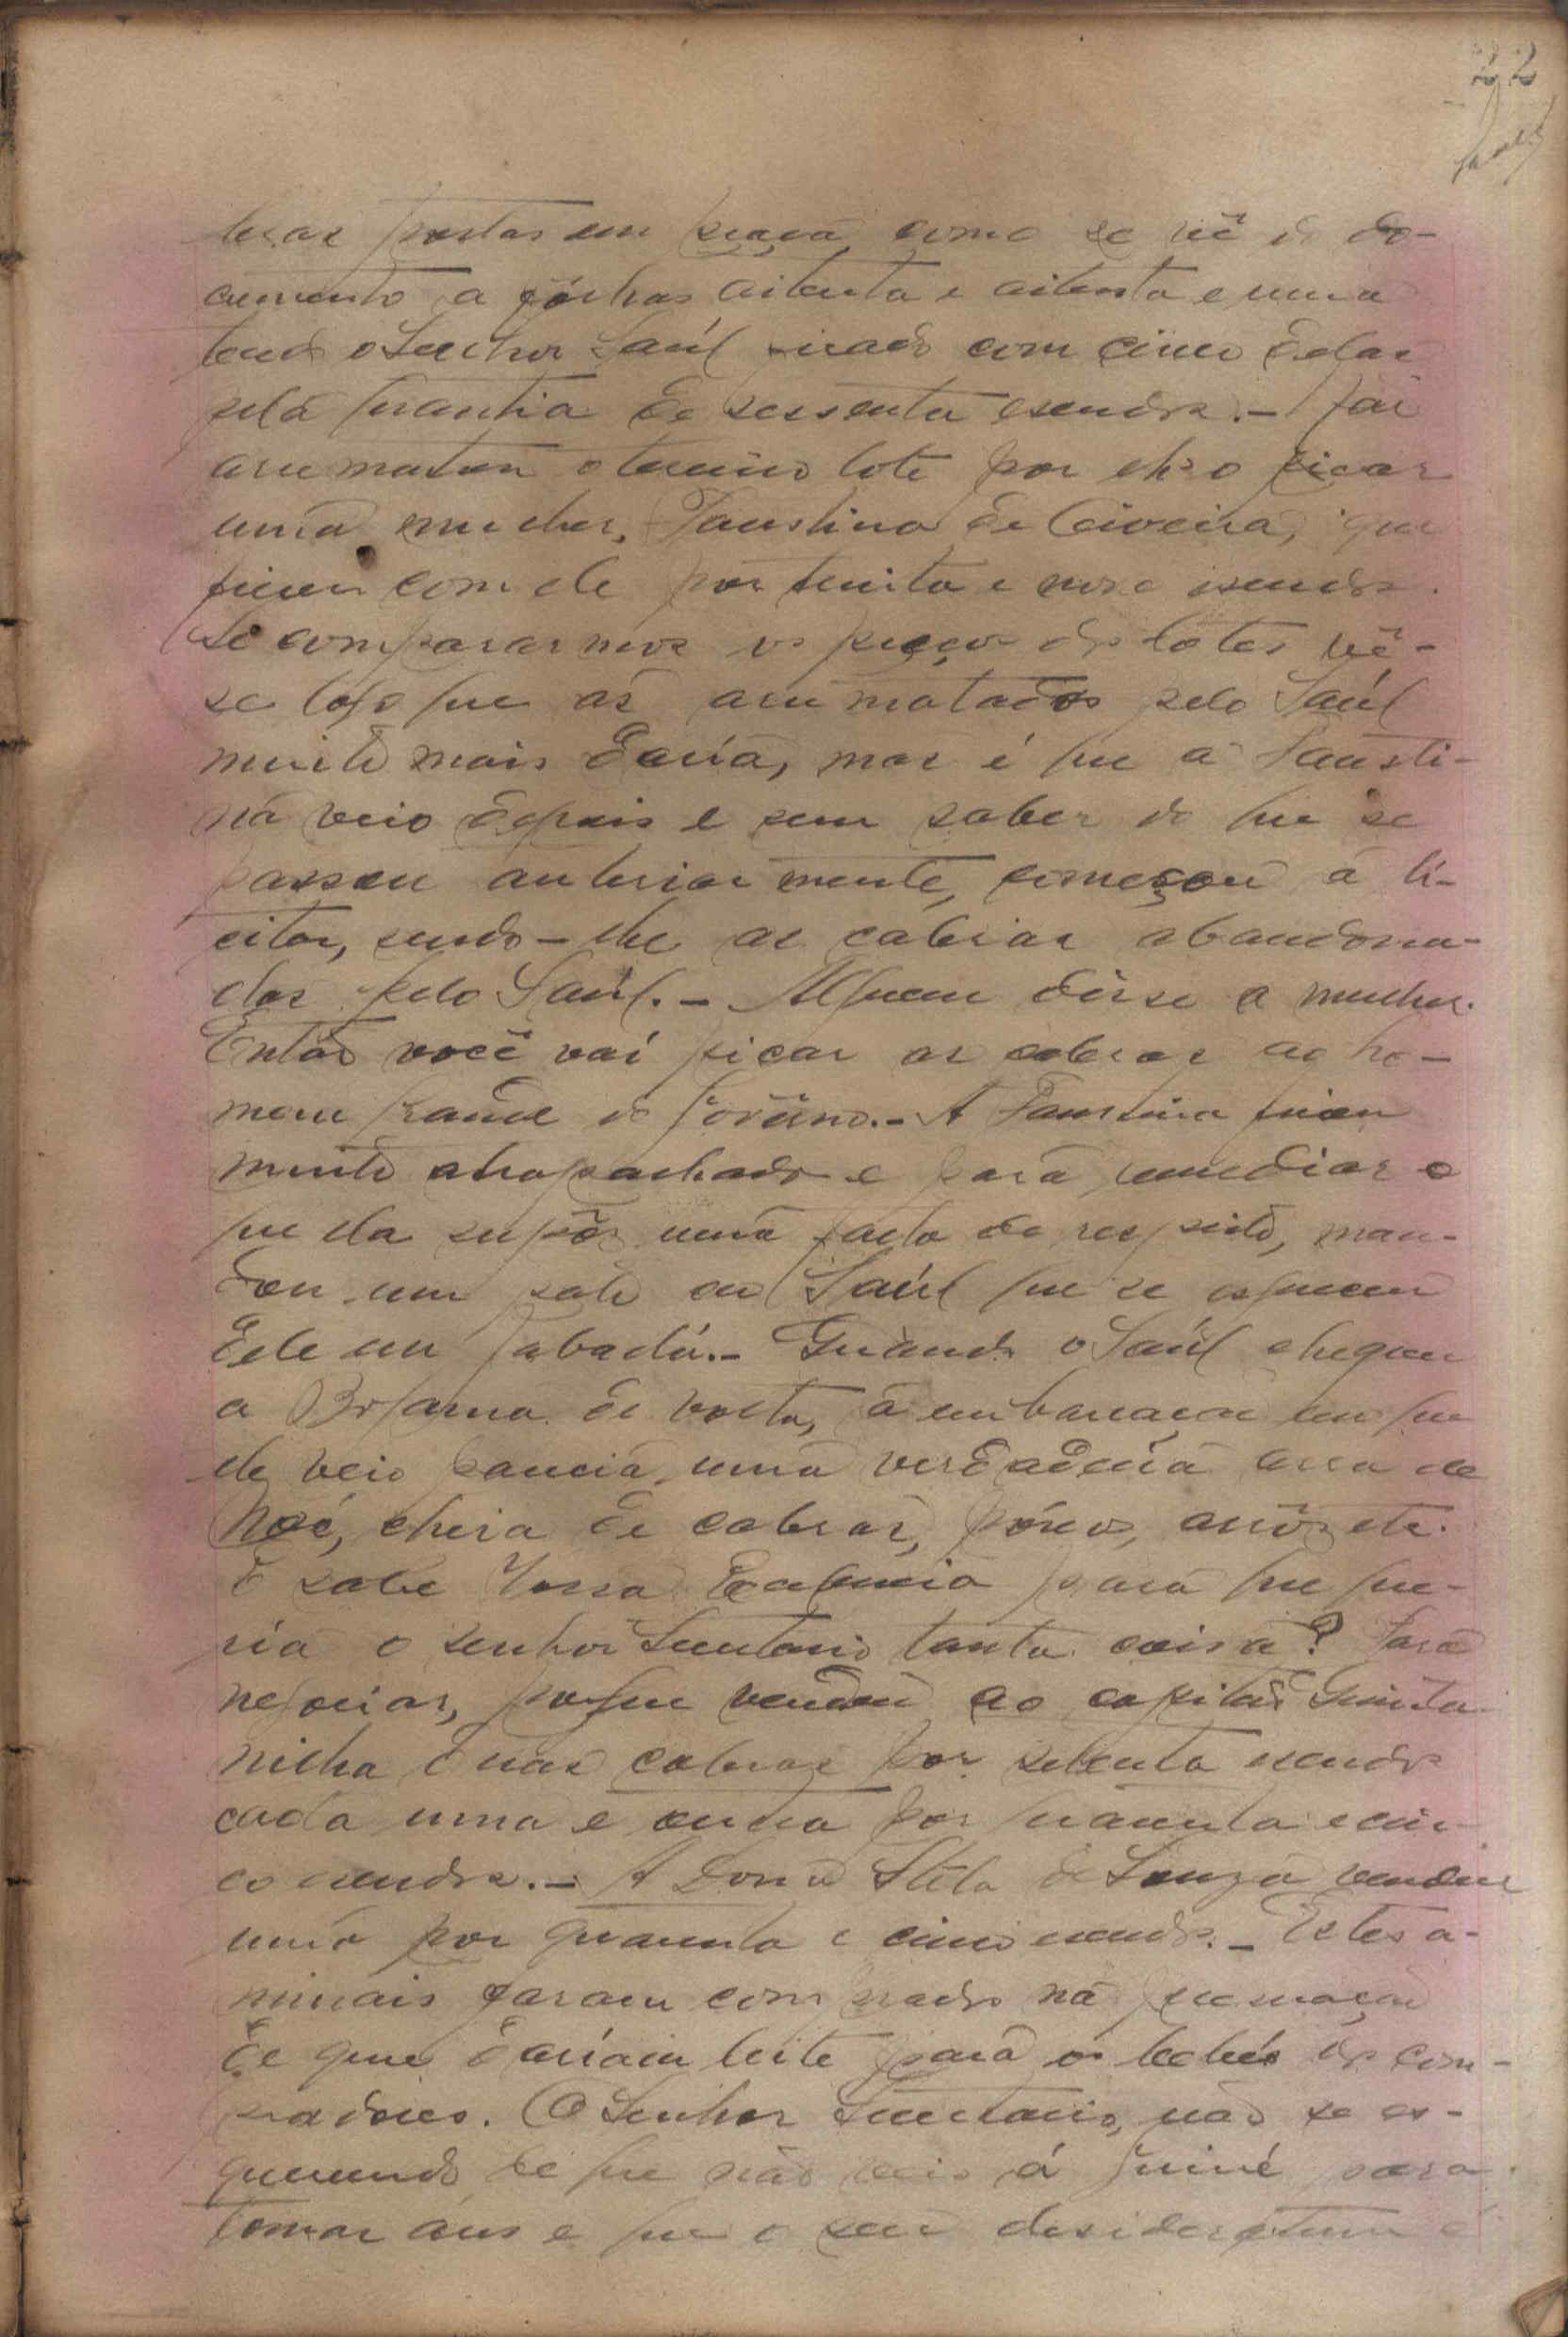 22
bras postas em praça, como se vê do do-
cumento a fôlhas oitenta e oitenta e uma
tendo o Senhor Saúl ficado com cinco delas
pela quantia de sessenta escudos.- Não
arrematou o terceiro lote por els o ficar
uma mulher, Faustina de Oliveira, que
ficou com ele por trinta e nove escudos.
Se compararmos os preços dos lotes vê-
se logo que as arrematados pelo Saúl
muito mais davia, mas é que a Fausti-
na veio depois e sem saber do que se
passou anteriormente, começou a li-
citar, sendo-lhe as cabras abandona-
das pelo Saúl.- Alguem disse a mulher.
Então você vai picar as cabras ao ho-
mem grande do Govêrno.- A Faustina ficou
muito atrapachada e para remediar o
que ela supôs uma falta de respeito, man-
dou um pote ao Saúl que se esqueceu
dele em Sabadú.- Quando o Saúl chegou
a Bolama de volta, a embarcação em que
ele veio parecia uma verdadeira arca de
Noé, cheia de cabras, porcos, arroz etc.
E sabe Vossa Excelencia para que que-
ria o senhor Secretario tanta coisa? Para
negociar, porque vendeu ao capitão Quinta-
nilha duas cabras por setenta escudos
cada uma e outra por quarenta e cin-
co escudos.- A Dona Stela de Souza vendeu
uma por quarenta e cinco escudos.- Estes a-
nimais foram comprados na presunção
de que dariam leite para os bebés dos com-
pradores. O Senhor Secretario, não se es-
quecendo de que não veio á Guiné para
tomar áres e que o seu desideratum é